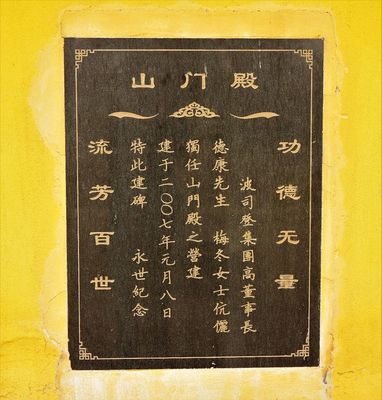 山门殿
功德无量
波司登集團高董事長
德康先生 梅冬女士伉儷
獨任山門殿之營建
建于二〇〇七年元月八日
特此建碑 永世紀念
流芳百世